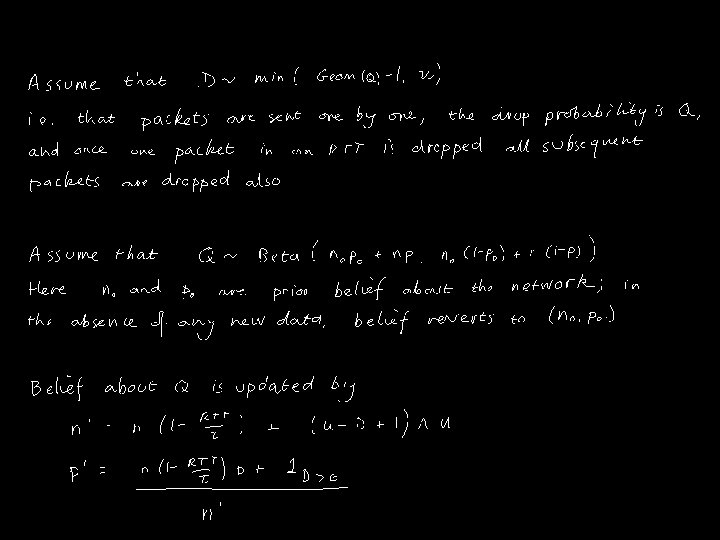 Assume that D ~ min( Geom(Q)-1, u)
i.e. that packets are sent one by one, the drop probability is Q,
and once one packet in an RTT is dropped all subsequent
packets are dropped also
Assume that Q ~ Beta ( n₀p₀ + np, n₀ (1-p₀) + n (1-p) )
Here n₀ and p₀ are prior belief about the network; in
the absence of any new data, belief reverts to (n₀, p₀)
Belief about Q is updated by
n' = n (1- RTT/τ) + (u-D+1) ∧ u
p' = n (1- RTT/τ) p + 1_{D>0}
n'